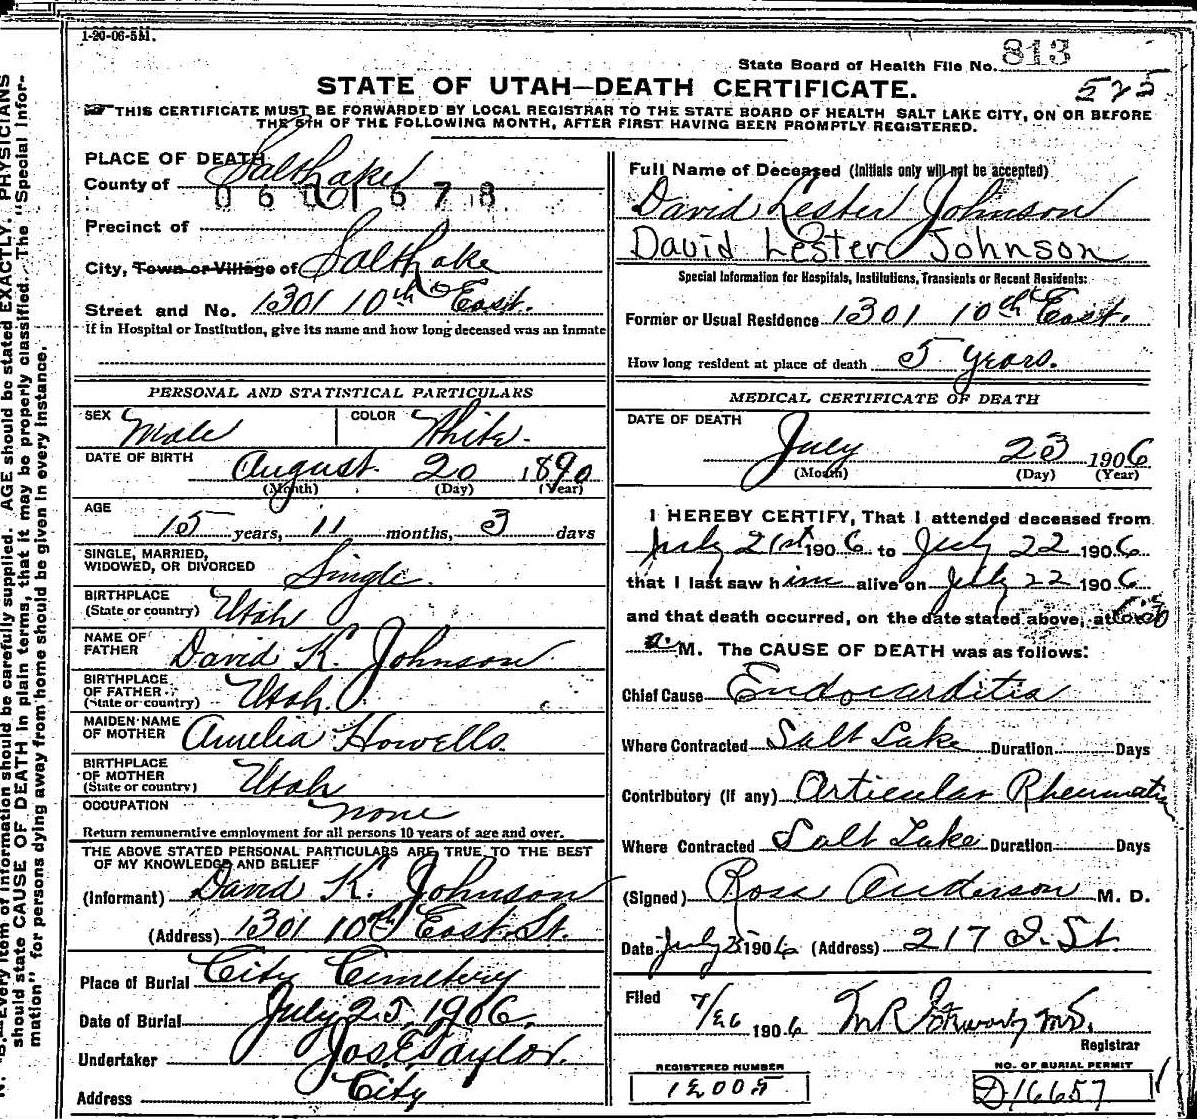 1-20-06-5M.
State Board of Health File No. 813
525
STATE OF UTAH—DEATH CERTIFICATE.
THIS CERTIFICATE MUST BE FORWARDED BY LOCAL REGISTRAR TO THE STATE BOARD OF HEALTH SALT LAKE CITY, ON OR BEFORE
THE 5TH OF THE FOLLOWING MONTH, AFTER FIRST HAVING BEEN PROMPTLY REGISTERED.
PLACE OF DEATH
County of Salt Lake
0601678
Precinct of
City, Town or Village of Salt Lake
Street and No. 1301 10th East.
if in Hospital or Institution, give its name and how long deceased was an inmate
PERSONAL AND STATISTICAL PARTICULARS
SEX Male COLOR White.
DATE OF BIRTH August 20 1890
(Month) (Day) (Year)
AGE
15 years, 11 months, 3 days
SINGLE, MARRIED,
WIDOWED, OR DIVORCED Single.
BIRTHPLACE
(State or country) Utah
NAME OF
FATHER David K. Johnson
BIRTHPLACE
OF FATHER
(State or country) Utah.
MAIDEN NAME
OF MOTHER Amelia Howells.
BIRTHPLACE
OF MOTHER
(State or country) Utah
OCCUPATION none
Return remunerative employment for all persons 10 years of age and over.
THE ABOVE STATED PERSONAL PARTICULARS ARE TRUE TO THE BEST
OF MY KNOWLEDGE AND BELIEF
(Informant) David K. Johnson
(Address) 1301 10th East St.
Place of Burial City Cemetery
Date of Burial July 25, 1906.
Undertaker Jos E Taylor.
Address City
Full Name of Deceased (Initials only will not be accepted)
David Lester Johnson
David Lester Johnson
Special Information for Hospitals, Institutions, Transients or Recent Residents:
Former or Usual Residence 1301 10th East.
How long resident at place of death 5 years.
MEDICAL CERTIFICATE OF DEATH
DATE OF DEATH
July 23 1906
(Month) (Day) (Year)
I HEREBY CERTIFY, That I attended deceased from
July 21st 1906 to July 22 1906
that I last saw him alive on July 22 1906
and that death occurred, on the date stated above, at
a. M. The CAUSE OF DEATH was as follows:
Chief Cause Endocarditis
Where Contracted Salt Lake Duration Days
Contributory (if any) Articular Rheumatism
Where Contracted Salt Lake Duration Days
(Signed) Ross Anderson M. D.
Date July 25 1906 (Address) 217 I. St.
Filed 7/26 1906 M R
Registrar
REGISTERED NUMBER
12005
NO. OF BURIAL PERMIT
D16657
N. B.—Every item of information should be carefully supplied. AGE should be stated EXACTLY. PHYSICIANS
should state CAUSE OF DEATH in plain terms, that it may be properly classified. The "Special Infor-
mation" for persons dying away from home should be given in every instance.